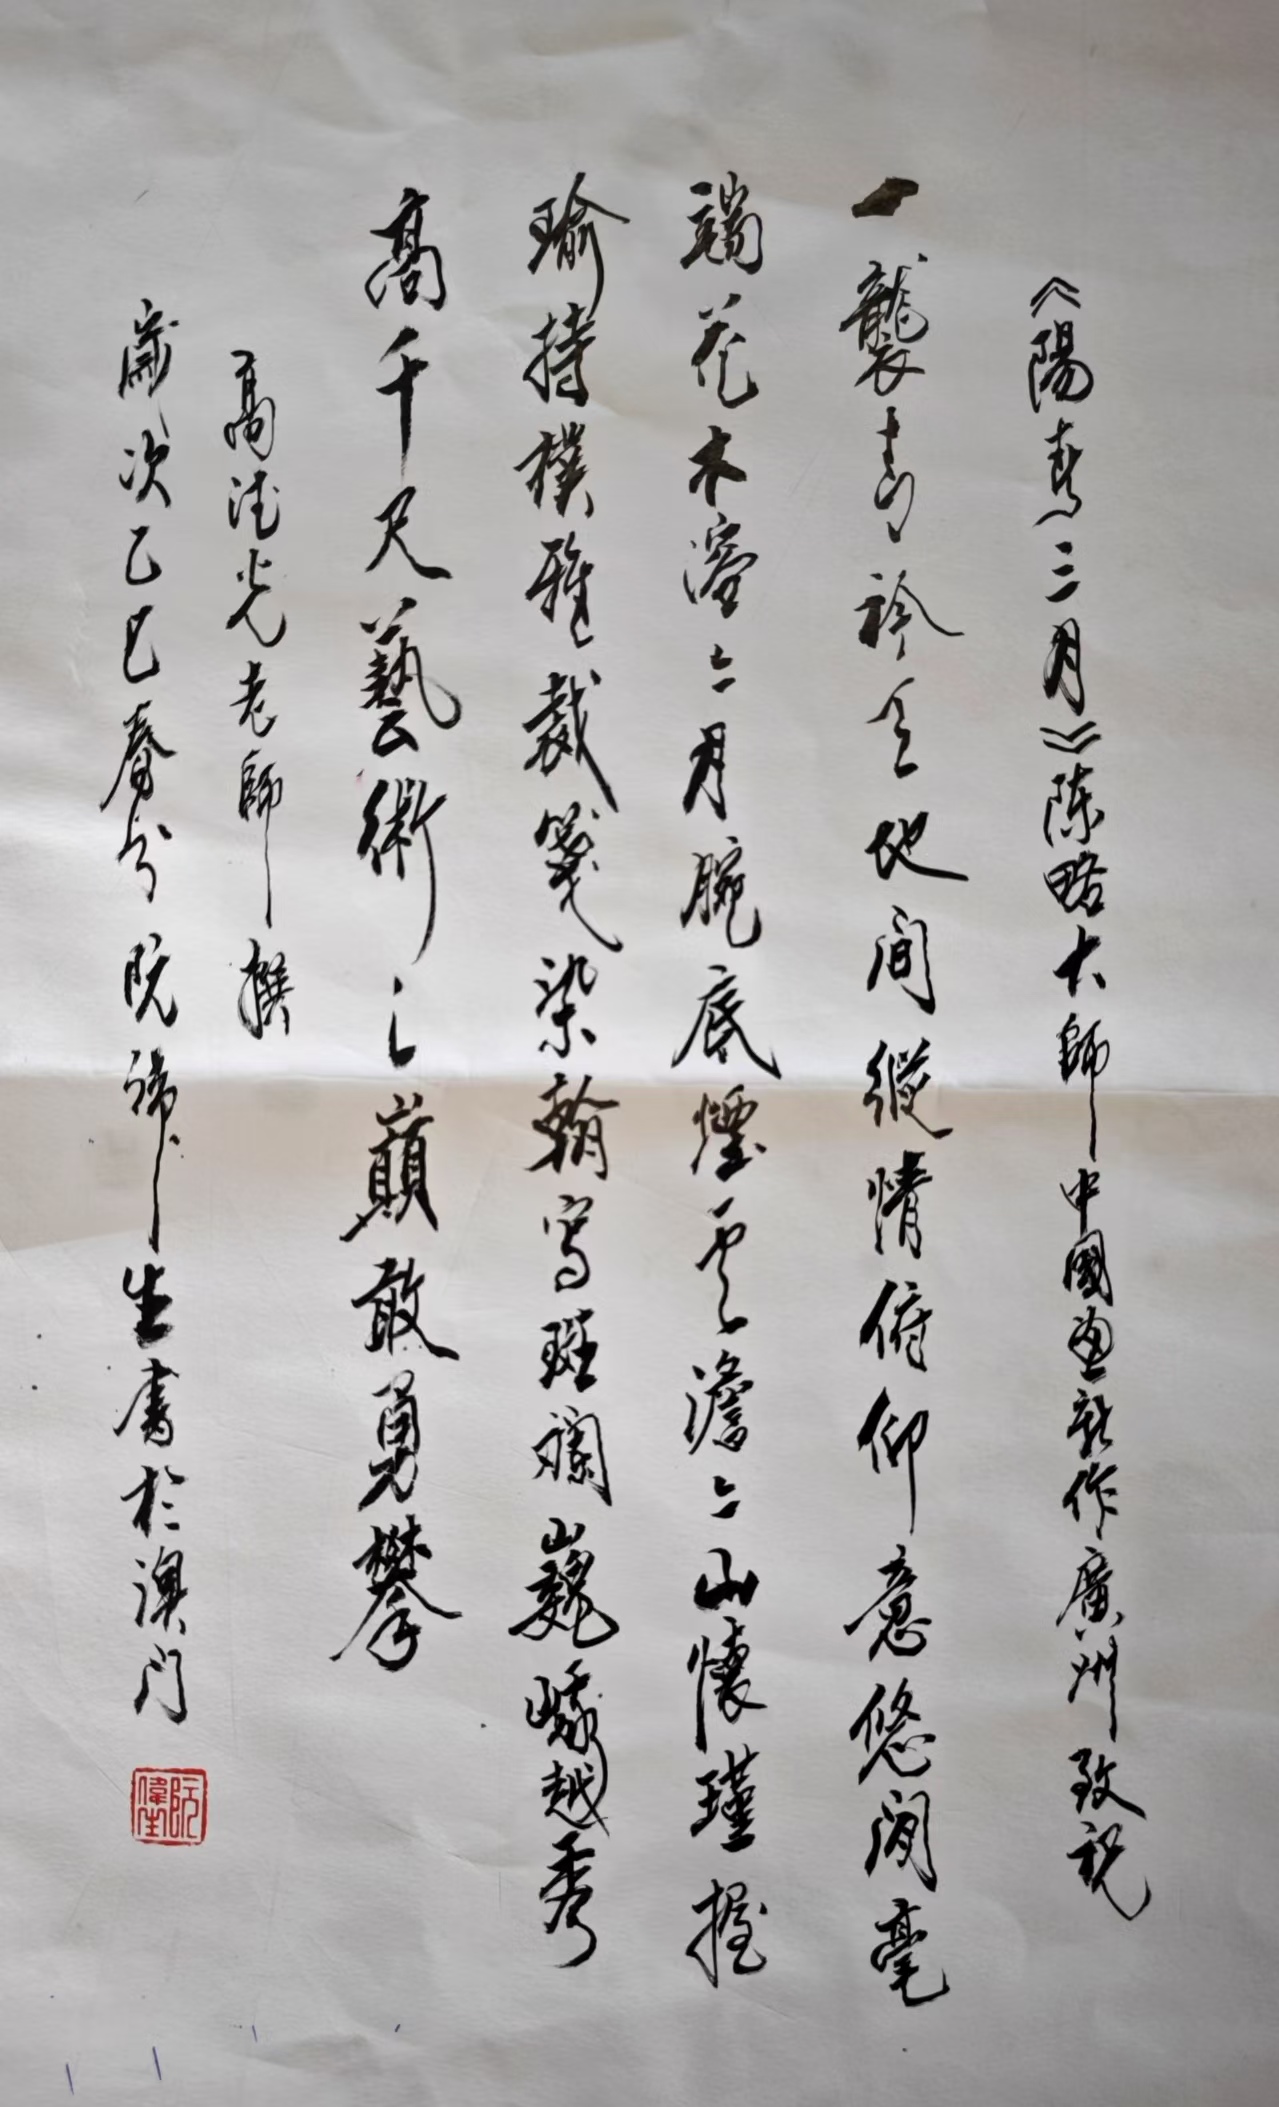 《陽春三月》陈略大師中國畫新作廣州致祝
一襲青衿天地間縱情俯仰意悠閒毫
端花木溶〻月腕底煙雲澹〻山懷瑾握
瑜持樸雅裁箋染翰寫斑斕巍峨越秀
高千尺藝術之巔敢勇攀
高德光老師撰
歲次乙巳春分阮偉生書於澳门
阮偉生